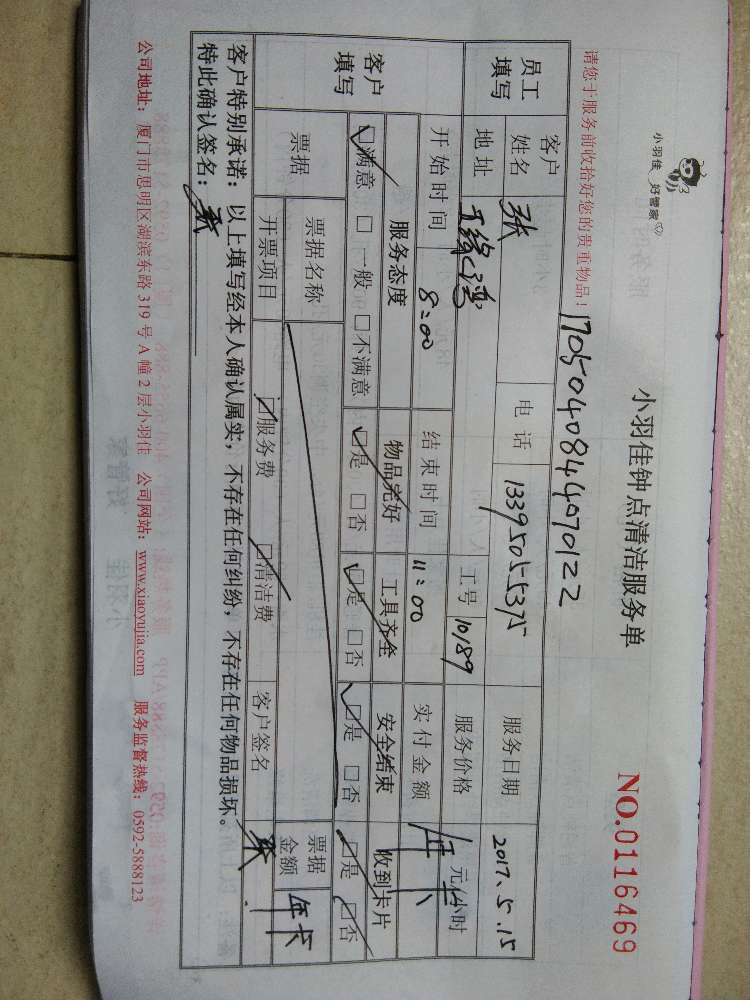 小羽佳 好管家
小羽佳钟点清洁服务单
NO.0116469
请您于服务前收拾好您的贵重物品！
17050408444070122
员工填写
客户姓名 张 电话 13395055375 服务日期 2017.5.15
地址 工号 10189 服务价格 年卡 元/小时
开始时间 8:00 结束时间 11:00 实付金额 年卡
客户填写
服务态度 物品完好 工具齐全 安全结束 收到卡片
☑满意 □一般 □不满意 ☑是 □否 ☑是 □否 ☑是 □否 □是 □否
票据 票据名称 票据金额 年卡
开票项目 □服务费 □清洁费 客户签名 张
客户特别承诺：以上填写经本人确认属实，不存在任何纠纷，不存在任何物品损坏。
特此确认签名：张
公司地址：厦门市思明区湖滨东路 319 号 A 幢 2 层小羽佳 公司网站：www.xiaoyujia.com 服务监督热线：0592-5888123